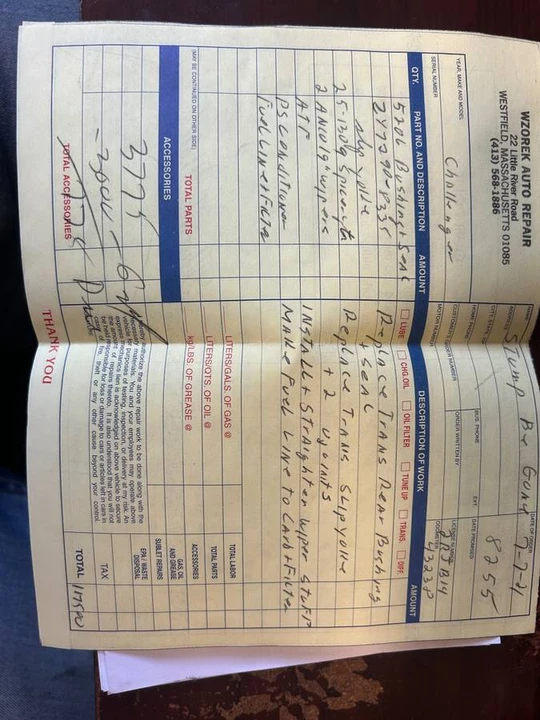 WZOREK AUTO REPAIR
22 Little River Road
WESTFIELD, MASSACHUSETTS 01085
(413) 568-1886
NAME
Stump Be Gone
DATE OF ORDER
7-7-4
ADDRESS
8255
CITY, STATE, ZIP
DATE PROMISED
HOME PHONE
BUS. PHONE
EXT.
YEAR, MAKE AND MODEL
Challenger
SERIAL NUMBER
MOTOR NUMBER
CUSTOMER'S ORDER NUMBER
ORDER WRITTEN BY
LICENSE NUMBER
ODOMETER
QTY.
PART NO. AND DESCRIPTION
AMOUNT
LUBE
CHG. OIL
OIL FILTER
TUNE UP
TRANS.
DIFF.
DESCRIPTION OF WORK
AMOUNT
5206 Bushing + Seal
slip yoke
ATF
PS Conditioner
Fuel Line + Filter
Replace Trans Rear Bushing
+ Seal
Replace Trans Slip yoke
+ 2 ujoints
Install + Straighten wiper Stuff
Make Fuel Line to Carb + Filter
(MAY BE CONTINUED ON OTHER SIDE)
TOTAL PARTS
ACCESSORIES
3775
-2000
TOTAL ACCESSORIES
LITERS/GALS. OF GAS @
LITERS/QTS. OF OIL @
KG/LBS. OF GREASE @
TOTAL LABOR
TOTAL PARTS
ACCESSORIES
GAS, OIL AND GREASE
SUBLET REPAIRS
EPA / WASTE DISPOSAL
TAX
TOTAL
authorize the above repair work to be done along with the
necessary materials. You and your employees may operate above
vehicle for purposes of testing, inspection, or delivery at my risk. An
express mechanics lien is acknowledged on above vehicle to secure
the amount of repairs thereto. It is also understood that you will not
be held responsible for loss or damage to cars or articles left in cars in
case of fire, theft or any other cause beyond your control.
THANK YOU